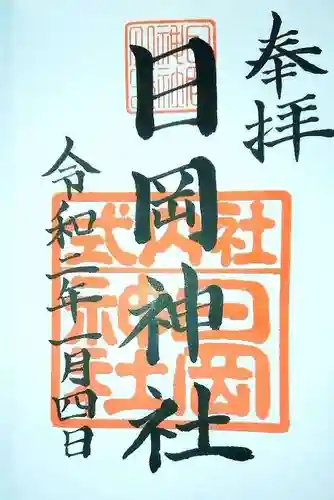 奉拝
日岡神社
令和二年一月四日
式内社
日岡神社